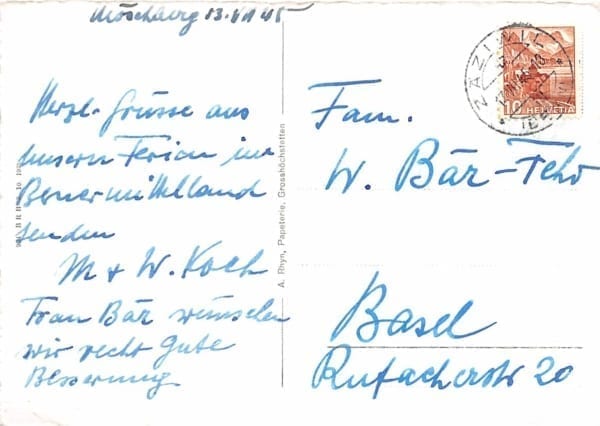 Möschberg 13. VII 45
Herzl. Grüsse aus
unsern Ferien im
Bernermittelland
senden
M + W. Koch
Frau Bär wünschen
wir recht gute
Besserung
A. Rhyn, Papeterie, Grosshöchstetten
ZÄZIWIL
10 HELVETIA
Fam.
W. Bär-
Basel
Rufacherstr 20